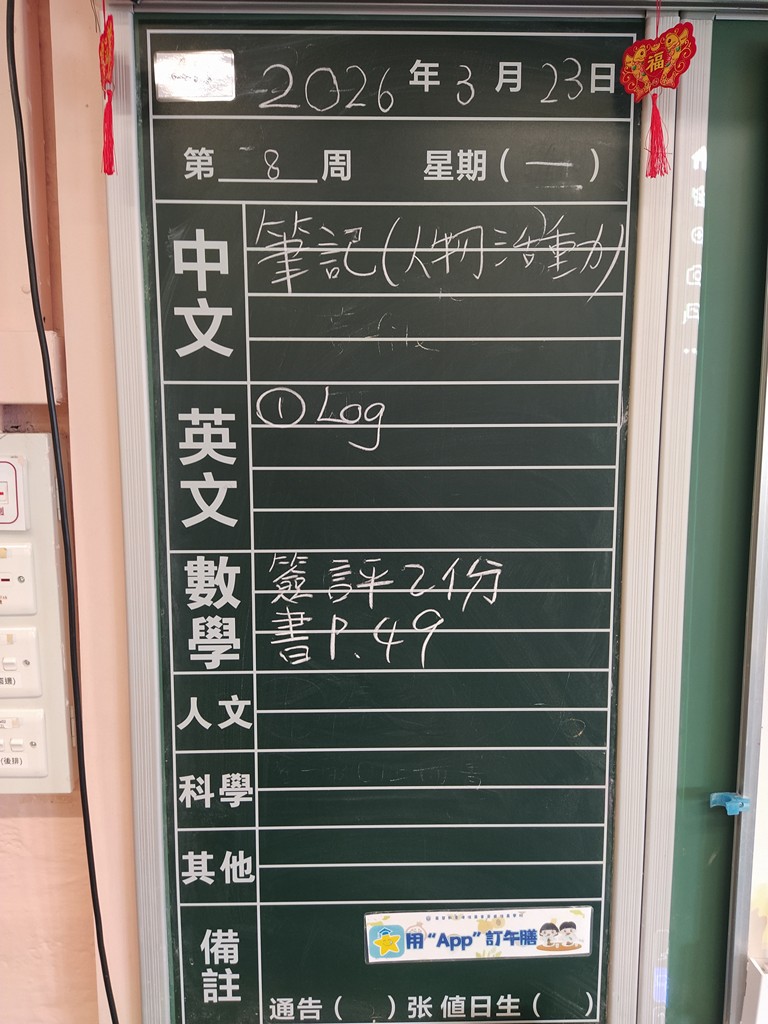 2026年3月23日
第 8 周 星期(一)
中文
筆記(人物活動)
英文
① Log
數學
簽評2份
書P.49
人文
科學
其他
備註
用“App”訂午膳
通告( )张 值日生( )
福
(後排)